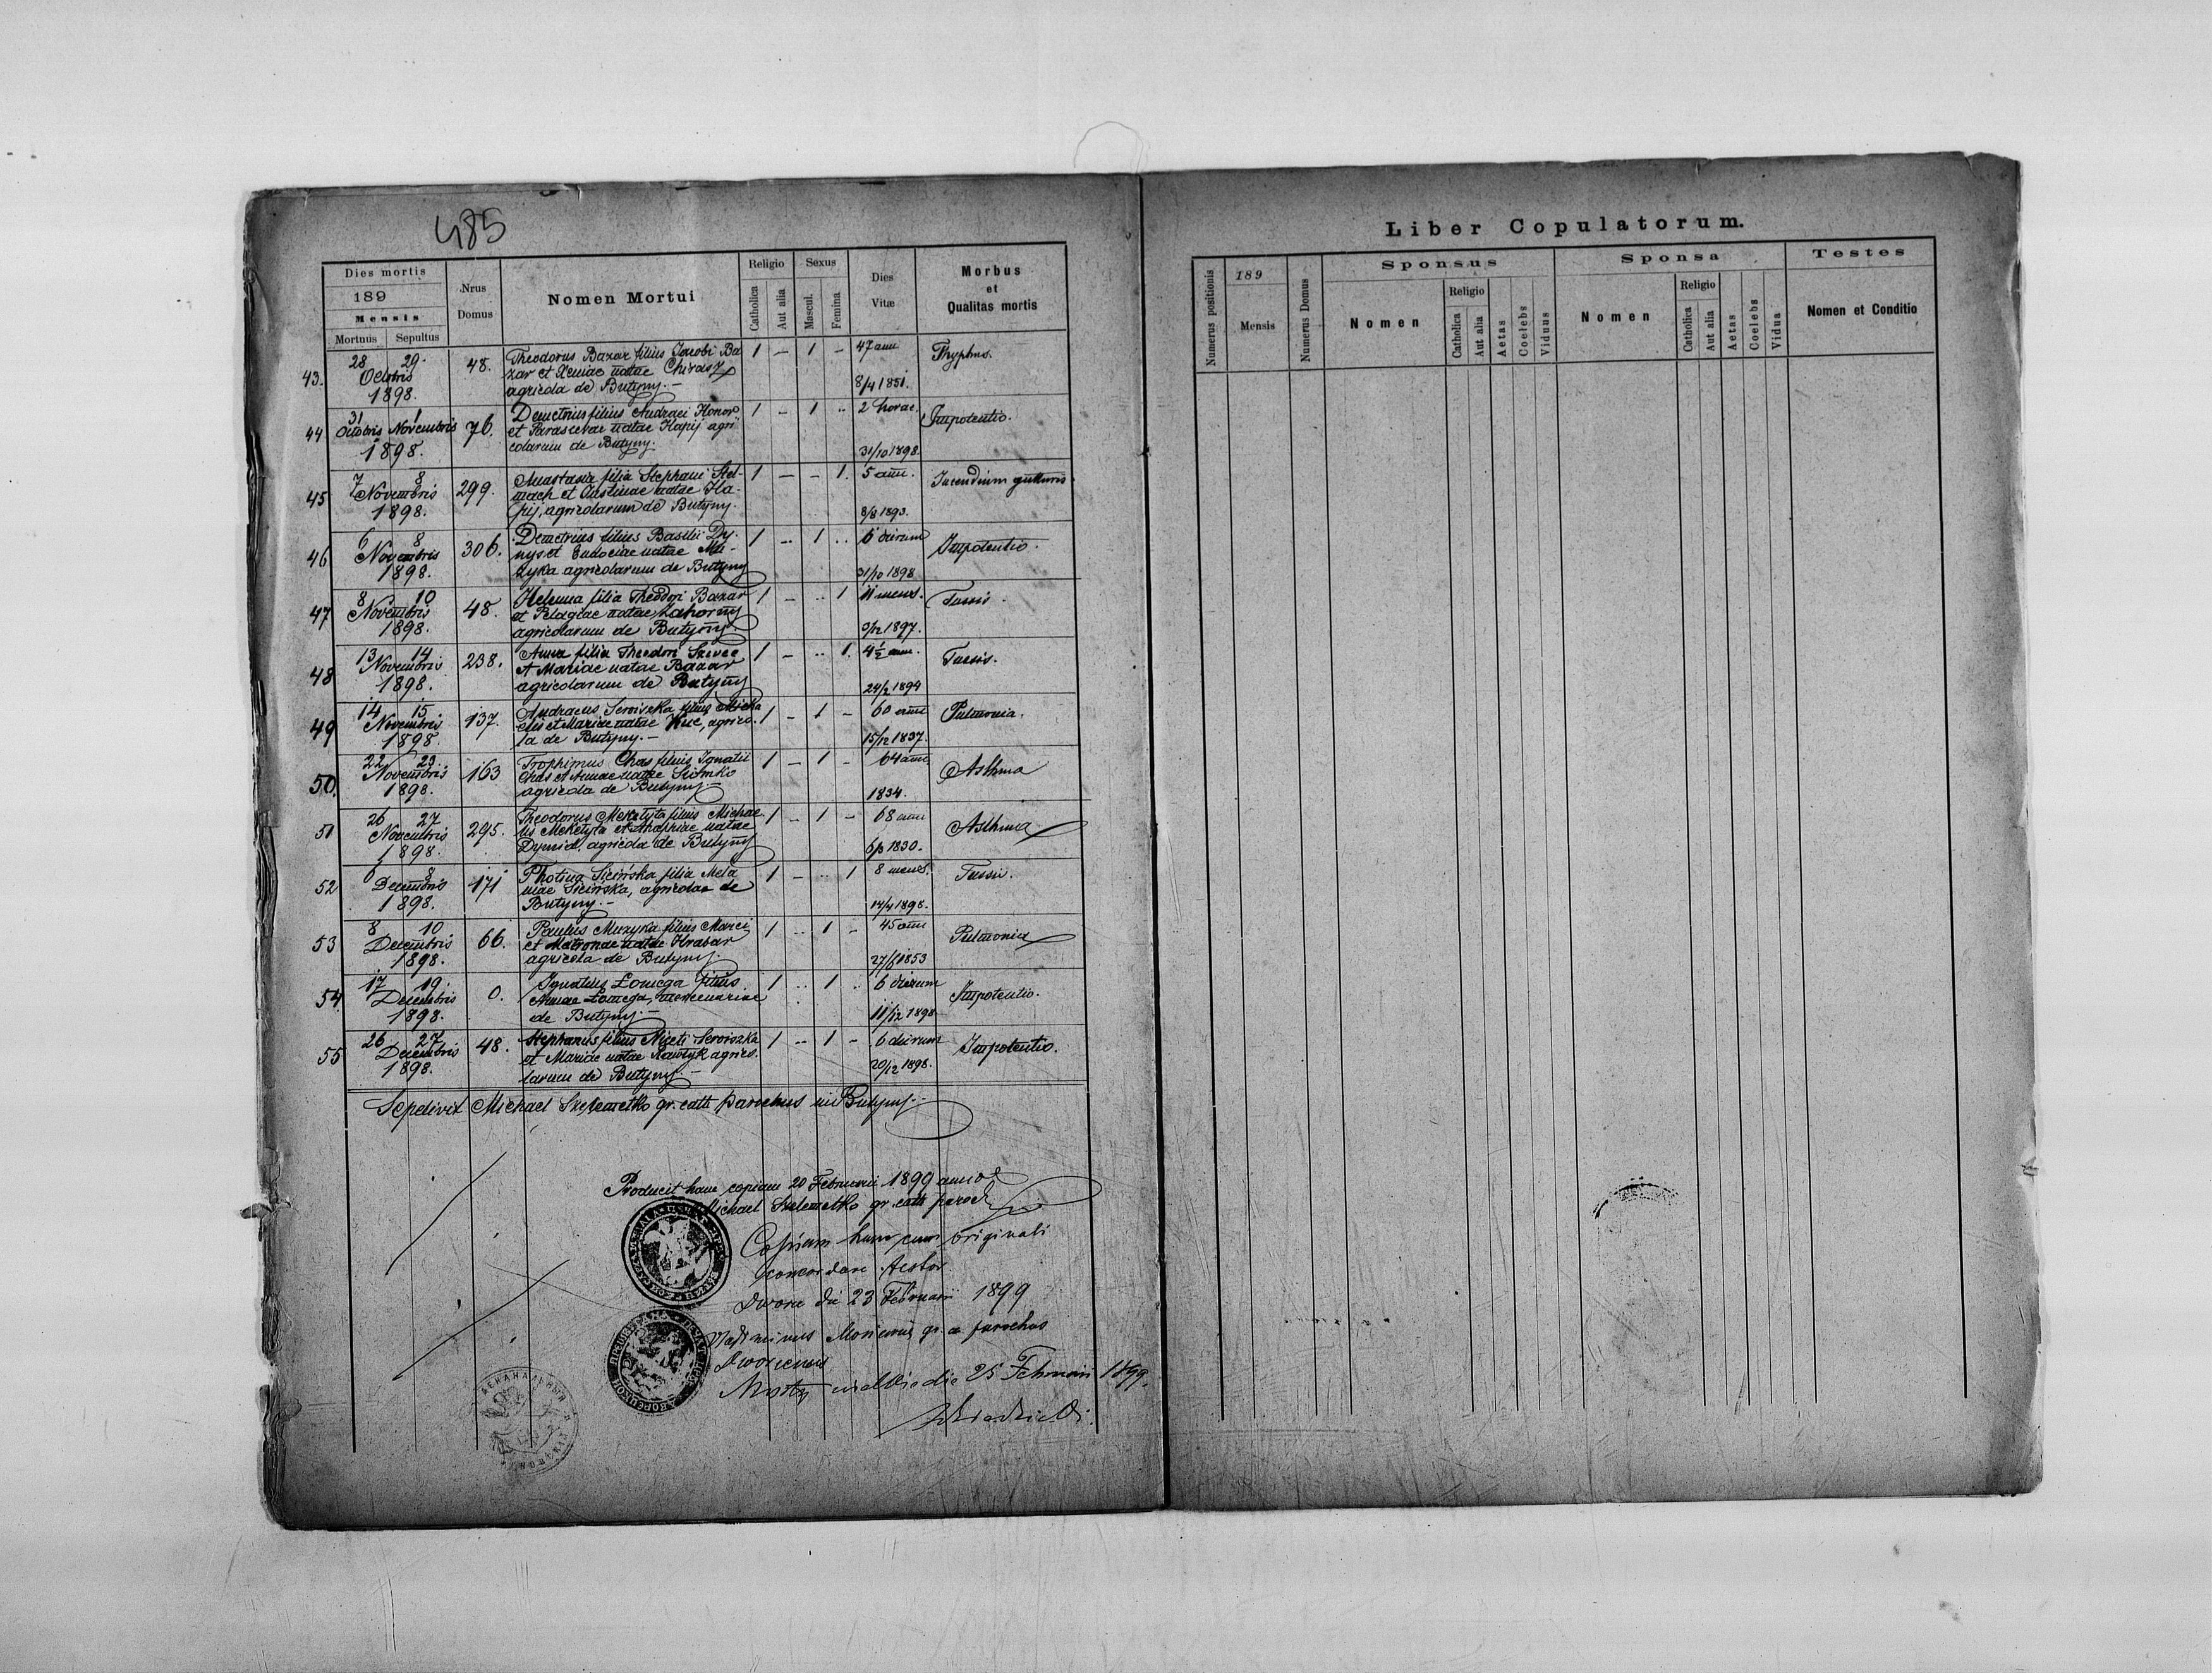 485
Dies mortis
189
Mensis
Mortuus Sepultus
Nrus Domus
Nomen Mortui
Religio
Catholica
Aut alia
Sexus
Mascul.
Femina
Dies Vitæ
Morbus et Qualitas mortis
43. 28 29. Octobris 1898. 48.
Theodorus Bazar filius Jacobi Ba
zar et Xeniae natae Chirasz
agricola de Butyny.–
1 – 1 – 47 ann 8/4 1851. Thyphus.
44 31 Octobris 1 Novembris 1898. 76.
Demetrius filius Andraei Honor
et Parascevae natae Hapij agri
colarum de Butyny.
1 – 1 .. 2 horae. 31/10 1898. Impotentio.
45 7 8 Novembris 1898. 299.
Anastasia filia Stephani Stel-
mach et Justinae natae Ha-
pij, agricolarum de Butyny.
1 – – 1. 5 ann. 8/8 1893. Incendium gutturis
46 6 8 Novembris 1898. 306.
Demetrius filius Basilii Dy-
nys et Eudociae natae Mu-
zyka agricolarum de Butyny
1 .. 1 .. 6 dierum 31/10 1898 Impotentio.
47 8 10 Novembris 1898. 48.
Helena filia Theodori Bazar
et Pelagiae natae Zahorny
agricolarum de Butyny.
1 – .. 1 11 mens. 9/12 1897. Tussis.
48 13 14 Novembris 1898. 238.
Anna filia Theodori Szwec
et Mariae natae Bazar
agricolarum de Butyny
1 – .. 1. 4½ ann. 24/2 1894 Tussis.
49 14 15 Novembris 1898. 137.
Andraeus Seroiszka filius Micha
elis et Mariae natae Kuc, agrico-
la de Butyny.–
1 – 1 – 60 ann 15/12 1837. Pulmonia.
50. 22 23. Novembris 1898. 163
Trophimus Chas filius Ignatii
Chas et Annae natae
agricola de Butyny.–
1 – 1 – 64 ann. 1834. Asthma
51 26 27 Novembris 1898. 295.
Theodorus Meketyta filius Michae
lis Meketyta et Ahaphiae natae
Dymid. agricola de Butyny
1 – 1 – 68 ann 1830. Asthma
52 6 8 Decembris 1898. 171
Photina Sicińska filia Mela
niae Sicińska, agricolae de
Butyny.–
1 – .. 1 8 mens. 14/4 1898. Tussis.
53 8 10 Decembris 1898. 66.
Paulus Muzyka filius Marci
et Matronae natae Hrabar
agricola de Butyny.
1 .. 1 – 45 ann 1853 Pulmonia
54. 17 19. Decembris 1898. 0.
Ignatius Łomega filius
Annae Łomega, mercenariae
de Butyny.–
1 .. 1 .. 6 dierum 11/12 1898 Impotentio.
55 26 27 Decembris 1898. 48.
Stephanus filius Niceti Seroiszka
et Mariae natae Hawryk agrico-
larum de Butyny.–
1 – 1 – 6 dierum 20/12 1898. Impotentio.
Sepelivit Michael Szelemetko gr. cath parochus in Butyny.
Producit hanc copiam 20 Februarii 1899 anno
Michael Szelemetko gr. cath paroch
Copiam hanc cum originali
concordare testor
Dworce die 23 Februarii 1899
parochus
Dworcensis
Mosty wielkie die 25 Februarii 1899.
Liber Copulatorum.
Numerus positionis
189
Mensis
Numerus Domus
Sponsus
Nomen
Religio
Catholica
Aut alia
Aetas
Coelebs
Viduus
Sponsa
Nomen
Religio
Catholica
Aut alia
Aetas
Coelebs
Vidua
Testes
Nomen et Conditio